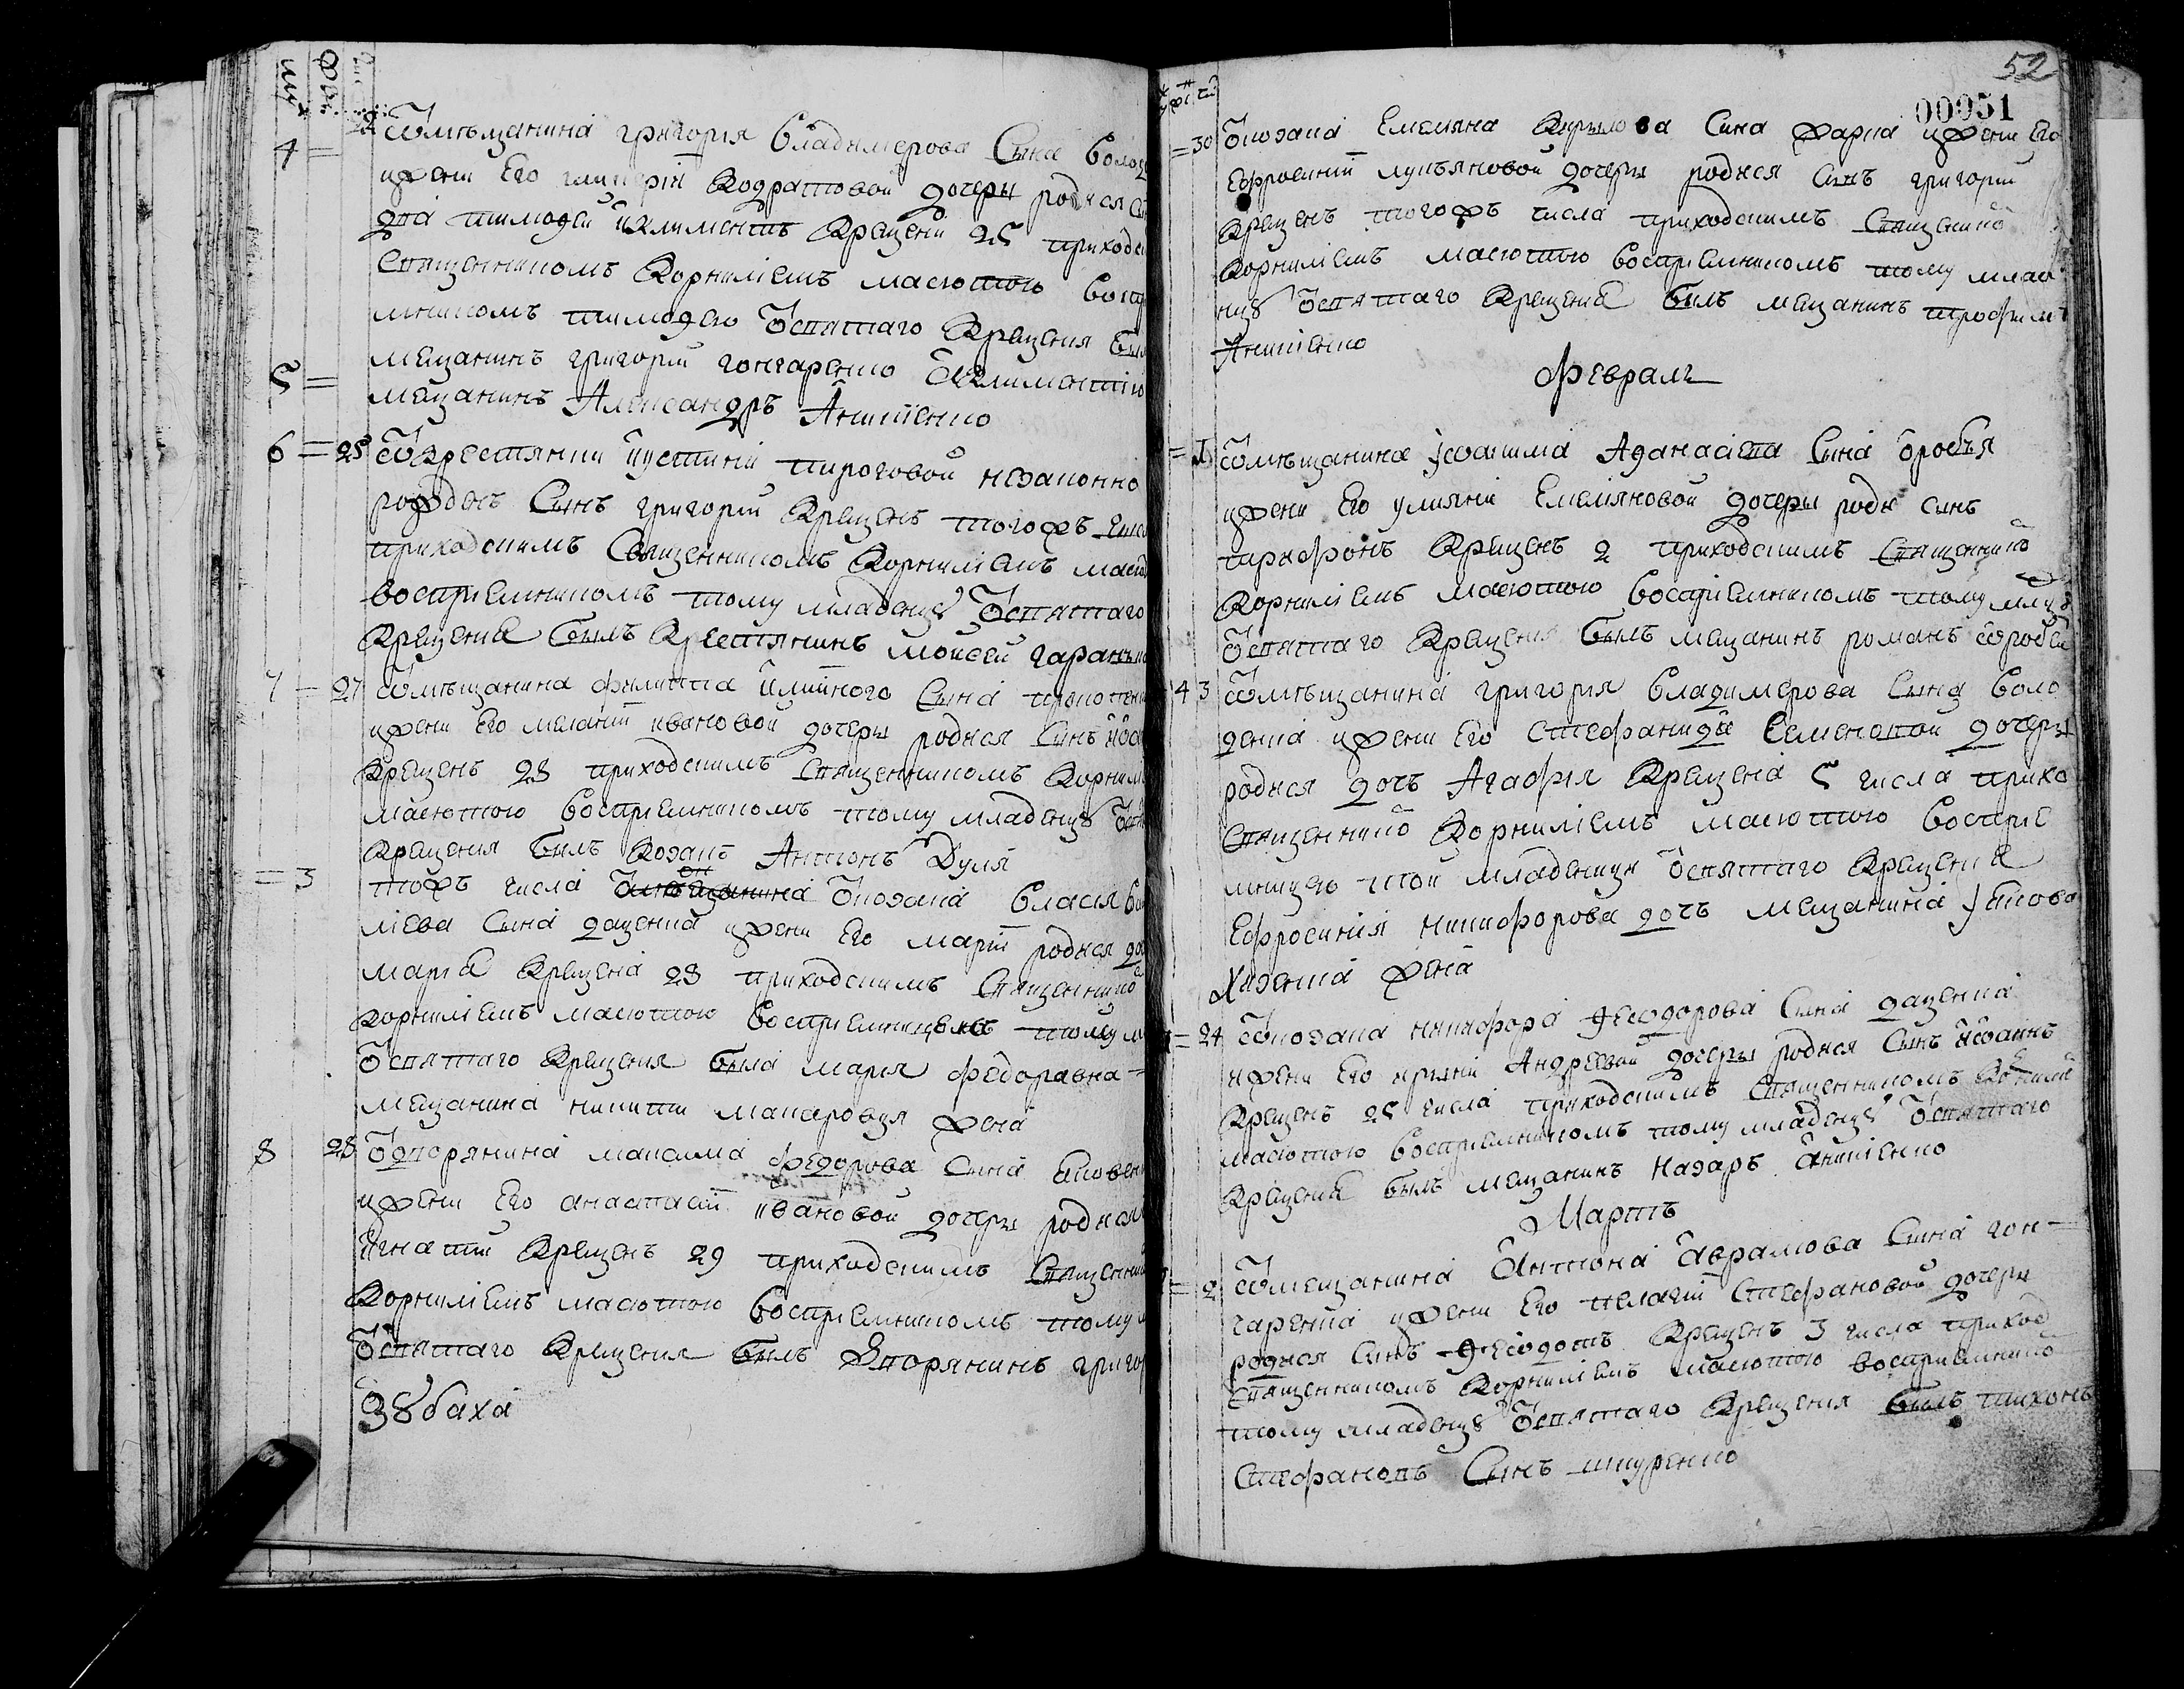 муж
4 = Ѿмѣщанина григория владимерова Сына воло
ижени Его гликерїи Кодратовой дочеры родися
два тимофей иклиментъ Крещени 25 приходс
Священникомъ Корнилїемъ масютою восп
мникомъ тимофею Ѿсвятаго Крещения был
5 = мещанинъ григорий гончаренко Климентїю
мещанинъ Александръ Аникїенко
6 = 25 Ѿкрестянки иустинїи пироговой незаконно
рожденъ Сынъ григорий Крещенъ тогожъ числа
приходскимъ Священникомъ Корнилїемъ масю
восприемникомъ тому младенцу Ѿсвятаго
Крещения былъ Крестянинъ моисей гаранъ
7 – 27 Ѿмѣщанина филиппа Сына
ижени Его меланїи ивановой дочеры родися Сынъ
Крещенъ 28 приходскимъ Священникомъ Корнил
масютою восприемникомъ тому младенцу Ѿсвя
Крещения былъ Козакъ Антонъ Дуля
= 3 тожъ числа Ѿкозака власия ва
лїева Сына даценка ижени Его марїи родися до
марїя Крещена 28 приходскимъ Священнико
корнилїемъ масютою восприемницею тому м
Ѿсвятаго Крещения была мария федоравна =
мещанина никити макаровця жена
8 28 Ѿдворянина максима федорова Сына
ижени Его анастасїи ивановой дочеры родися
игнатий Крещенъ 29 приходскимъ Священни
Корнилїемъ масютою восприемникомъ тому м
Ѿсвятаго Крещения былъ Дворянинъ григор
Зубаха
52
00051
= 30 Ѿкозака Емелияна Кирилова Сина ижени Его
Ефросинїи лукъяновой дочеры родися Синъ григорий
Крещенъ тогожъ числа приходскимъ Священико
Корнилїемъ масютою восприемникомъ тому млад
нцу Ѿсвятаго Крещения былъ мещанинъ трофимъ
Аникїенко
Февраль
= 1 Ѿмѣщанина Иоакима Афанасїева Сына
ижени Его улияни Емелїяновой дочеры роди сынъ
трифонъ Крещенъ 2 приходскимъ Священнико
Корнилїемъ масютою восприемникомъ тому млцу
Ѿсвятаго Крещения былъ мещанинъ романъ
4 3 Ѿмѣщанина григория владимерова Сына воло
денка ижени Его Стефаниды Семеновой дочеры
родися дочъ Агафия Крещена 5 числа прихо
Священнико Корнилїемъ масютою восприе
мницею той младенци Ѿсвятаго Крещения
Ефросиния никифорова дочъ мещанина Якова
жена
= 24 Ѿкозака никифора Феодорова Сина даценка
ижени Его Андреевой дочеры родися Синъ Иоаннъ
Крещенъ 25 числа приходскимъ Священникомъ Корнилїе
масютою восприемникомъ тому младенцу Ѿсвятаго
Крещения былъ мещанинъ Назаръ Аникїенко
Мартъ
= 2 Ѿмещанина Антона Аврамова Сина гон–
чаренка ижени Его пелагїи Стефановой дочеры
родися Синъ Феодотъ Крещенъ 3 числа приход
Священникомъ Корнилїемъ масютою восприемнико
тому младенцу Ѿсвятаго Крещения былъ тихонъ
Стефановъ Синъ шкуренко